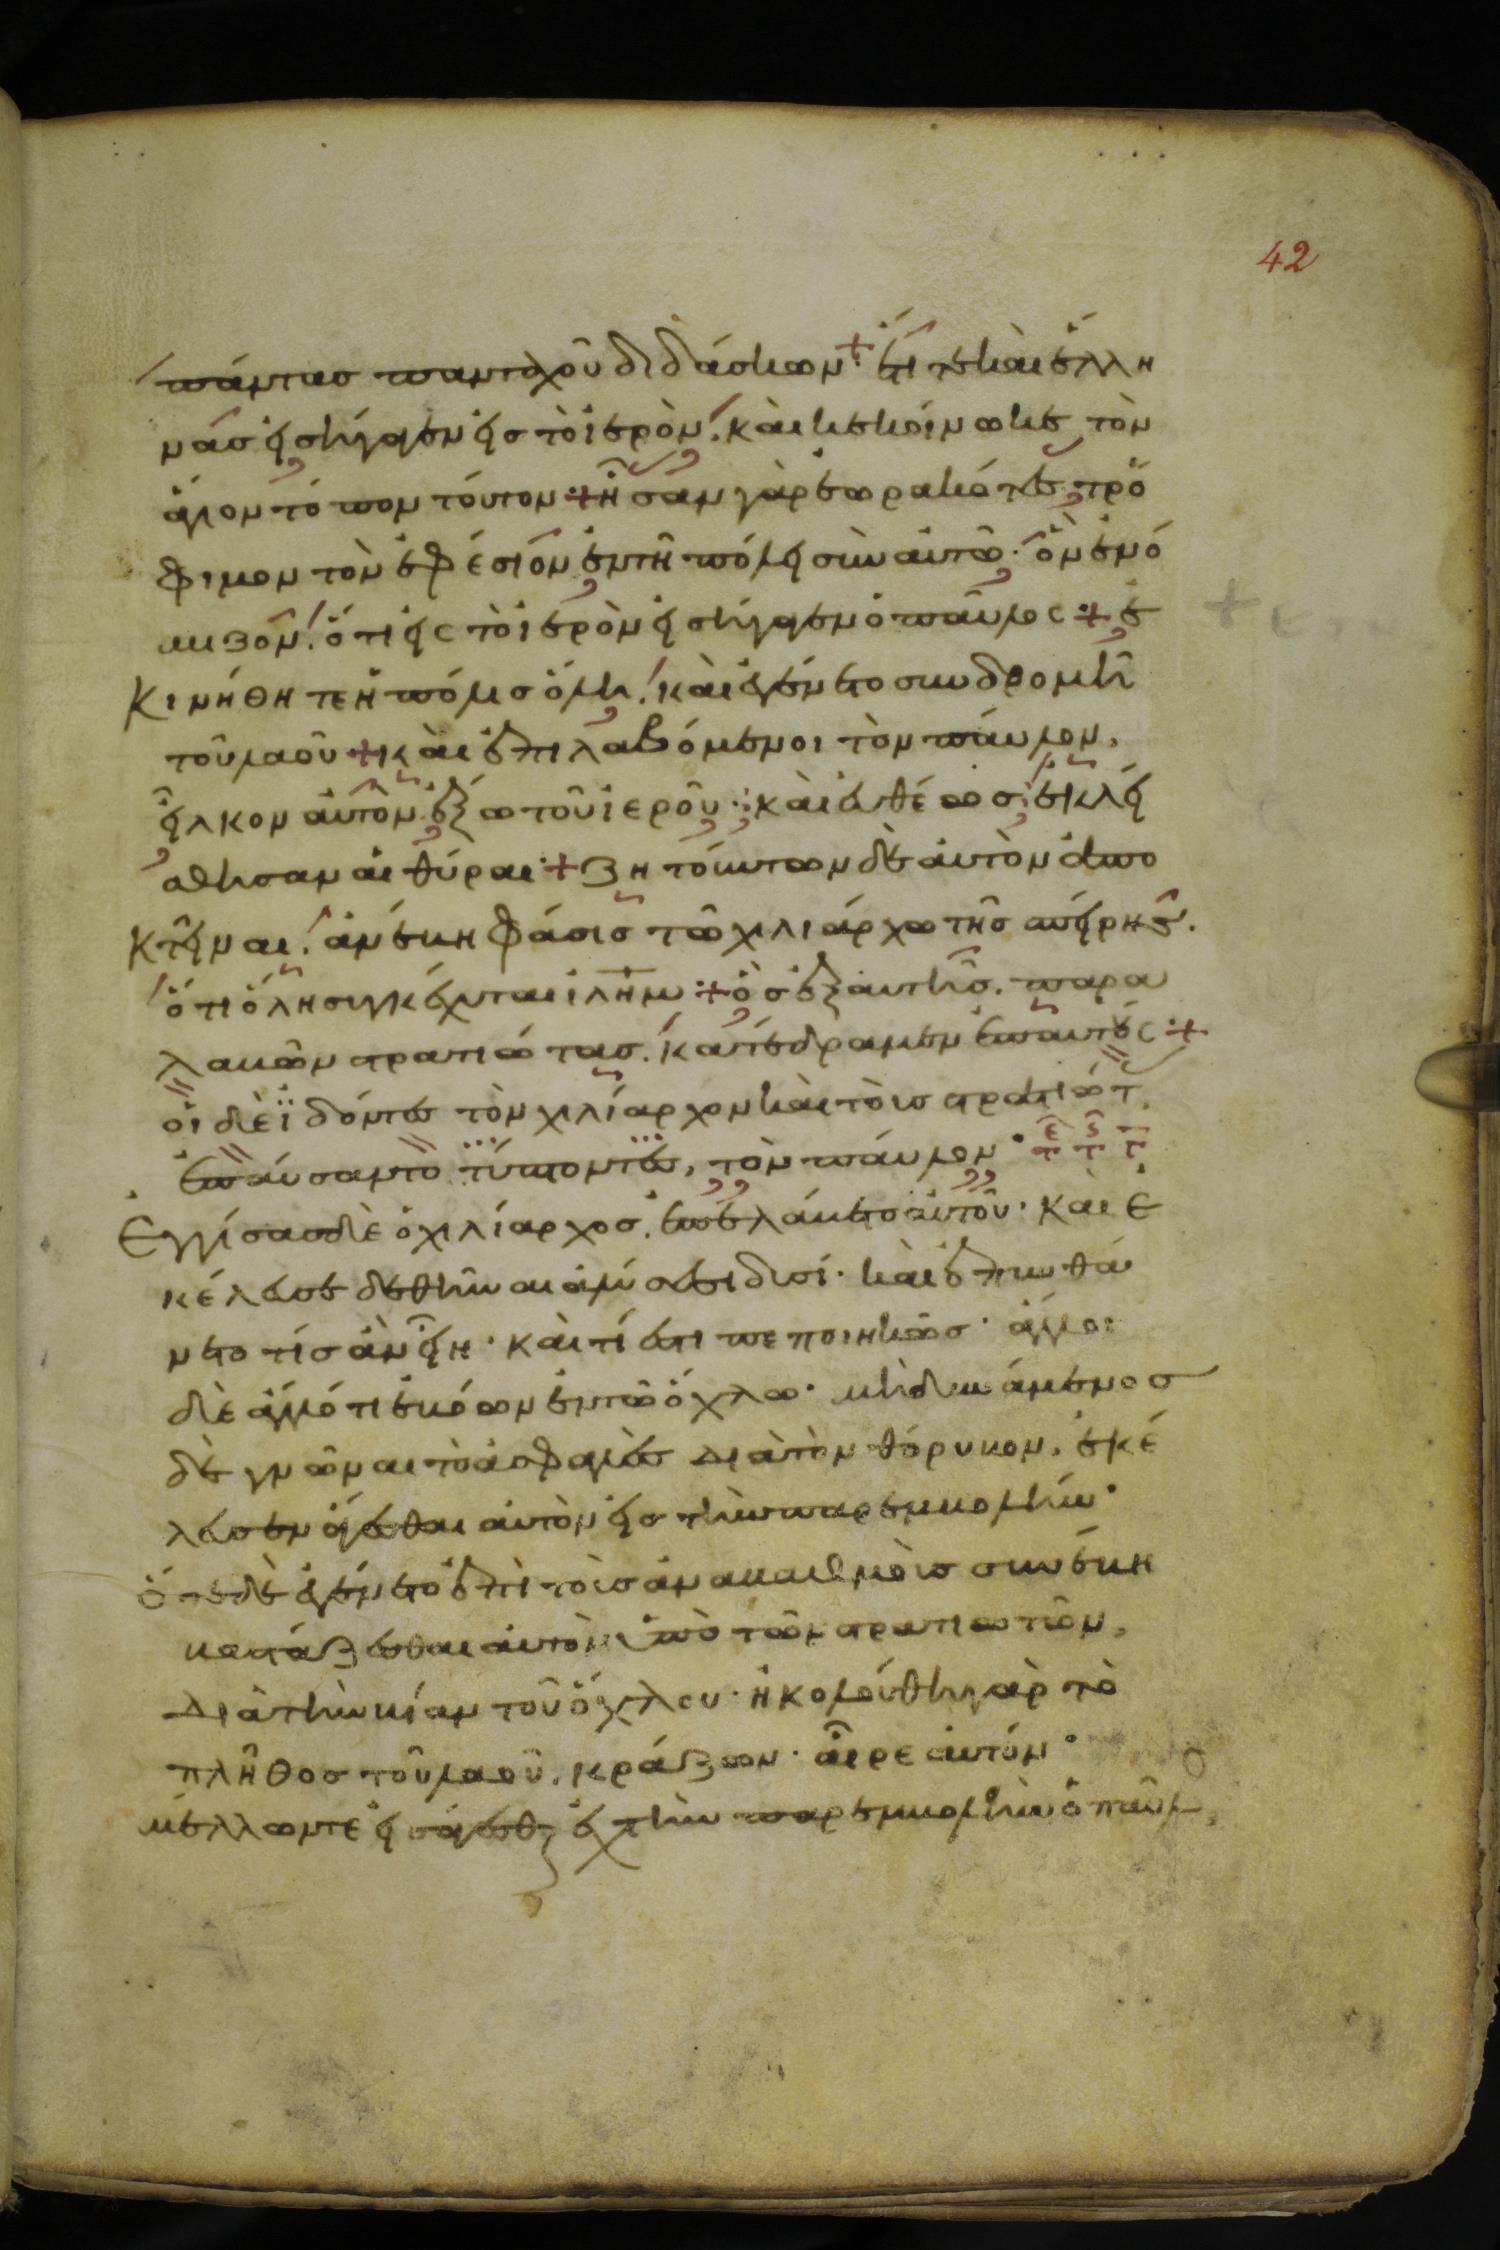 42
πάντας πανταχοῦ διδάσκων· ἔτι τε καὶ ἕλλη
νας εἰσήγαγεν εἰς τὸ ἱερὸν. καὶ κεκοίνωκε τὸν
ἅγιον τόπον τοῦτον· ἦσαν γὰρ ἑωρακότες τρό
φιμον τὸν ἐφέσιον ἐν τῆ πόλει σὺν αὐτῶ· ὃν ἐνό
μιζον. ὅτι εἰς τὸ ἱερὸν εἰσήγαγεν ὁ παῦλος· ἐ
κινήθη τε ἡ πόλις ὅλη. καὶ ἐγένετο συνδρομὴ
τοῦ λαοῦ· καὶ ἐπιλαβόμενοι τὸν παῦλον,
εἷλκον αὐτὸν ἔξω τοῦ ἱεροῦ· καὶ εὐθέως ἐκλεί
σθησαν αἱ θύραι· ζητούντων δὲ αὐτὸν ἀπο
κτεῖναι. ἀνέβη φάσις τῶ χιλιάρχω τῆς σπείρης.
ὅτι ὅλη συγκέχυται ἰλῆμ· ὃς ἐξ αυτῆς. παρα
λαβὼν στρατιώτας. κατέδραμεν ἐπ αυτούς·
οἱ δὲ ἰδόντες τὸν χιλίαρχον καὶ τοὺς στρατιώτ
ἐπαύσαντο τύπτοντες, τὸν παῦλον·
Εγγίσας δὲ ὁ χιλίαρχος. ἐπελάβετο αὐτοῦ· καὶ ἐ
κέλευσε δεθῆναι ἁλύσεσι δυσί· καὶ ἐπυνθά
νετο τίς ἂν εἴη· καὶ τί ἐστι πεποιηκώς· ἄλλοι
δὲ ἄλλό τι ἐβόων ἐν τῶ ὄχλω· μὴ δυνάμενος
δὲ γνῶναι τὸ ἀσφαλὲς διὰ τὸν θόρυβον. ἐκέ
λευσεν ἄγεσθαι αὐτὸν εἰς τὴν παρεμβολήν·
ὅτε δὲ ἐγένετο ἐπὶ τοὺς ἀναβαθμοὺς συνέβη
βαστάζεσθαι αὐτὸν ὑπὸ τῶν στρατιωτῶν,
διὰ τὴν βίαν τοῦ ὄχλου· ἠκολούθη γὰρ τὸ
πλῆθος τοῦ λαοῦ, κράζων· αἶρε αὐτόν·
μέλλων τε εἰσάγεσθ εἰς τὴν παρεμβολὴν ὁ παῦλ